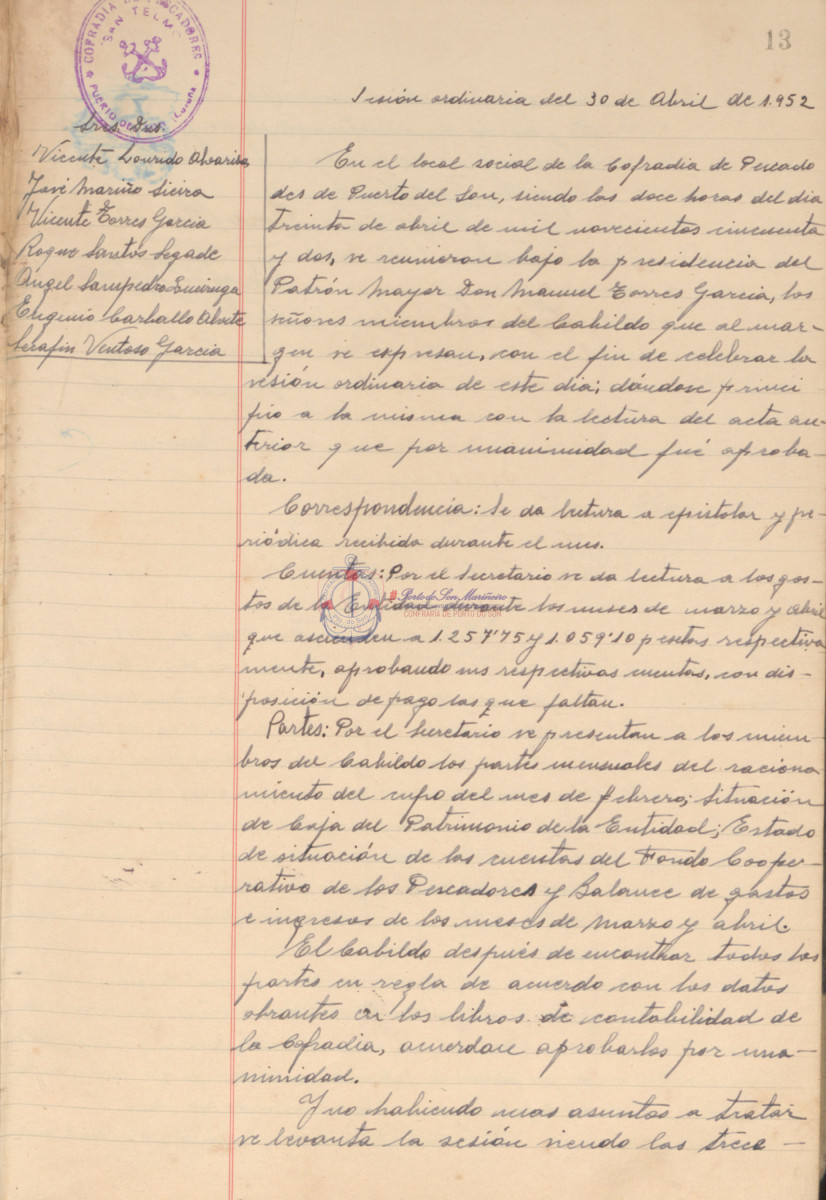 13
COFRADIA DE PESCADORES
"SAN TELMO"
PUERTO DEL
Sesión ordinaria del 30 de Abril de 1.952
Sres. Dns.
Vicente Lourido Alvariza
José Mariño Sieira
Vicente Torres Garcia
Roque Santos Segade
Angel Sampedro Queiruga
Eugenio Carballo
Serafin Ventoso Garcia
En el local social de la Cofradia de Pescado
des de Puerto del Son, siendo las doce horas del dia
treinta de abril de mil novecientos cincuenta
y dos, se reunieron bajo la presidencia del
Patrón Mayor Don Manuel Torres Garcia, los
señores miembros del Cabildo que al mar-
gen se expresan, con el fin de celebrar la
sesión ordinaria de este dia; dándose princi-
pio a la misma con la lectura del acta an-
terior que por unanimidad fué aproba-
da.
Correspondencia: Se da lectura a epistolar y pe-
riódica recibida durante el mes.
Cuentas: Por el Secretario se da lectura a los gas-
tos de la Entidad durante los meses de marzo y abril
Porto do Son Mariñeiro
CONFRARÍA DE PORTO DO SON
que ascienden a 1.257'75 y 1.059'10 pesetas respectiva
mente, aprobando sus respectivas cuentas, con dis-
posición de pago las que faltan.
Partes: Por el Secretario se presentan a los miem-
bros del Cabildo los partes mensuales del raciona-
miento del cupo del mes de febrero; Situación
de Caja del Patrimonio de la Entidad; Estado
de situación de las cuentas del Fondo Coope-
rativo de los Pescadores y Balance de gastos
e ingresos de los meses de Marzo y abril.
El Cabildo después de encontrar todos los
partes en regla de acuerdo con los datos
obrantes en los libros de contabilidad de
la Cofradia, acuerdan aprobarlos por una-
nimidad.
Y no habiendo mas asuntos a tratar
se levanta la sesión siendo las trece -